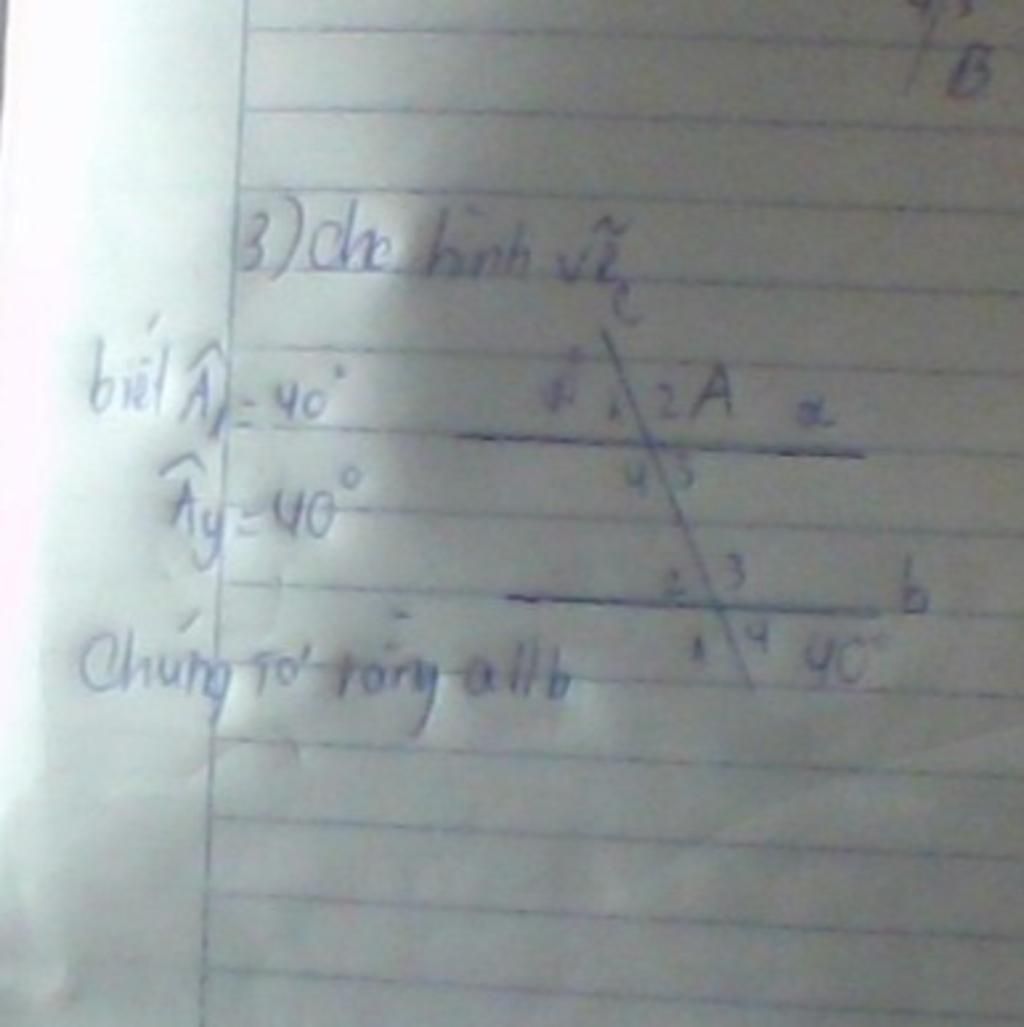 B
3) Cho hình vẽ
c
biết Â1 = 40°
1 2 A a
4 3
Â4 = 40°
2 3 b
1 4 40°
Chứng tỏ rằng a//b